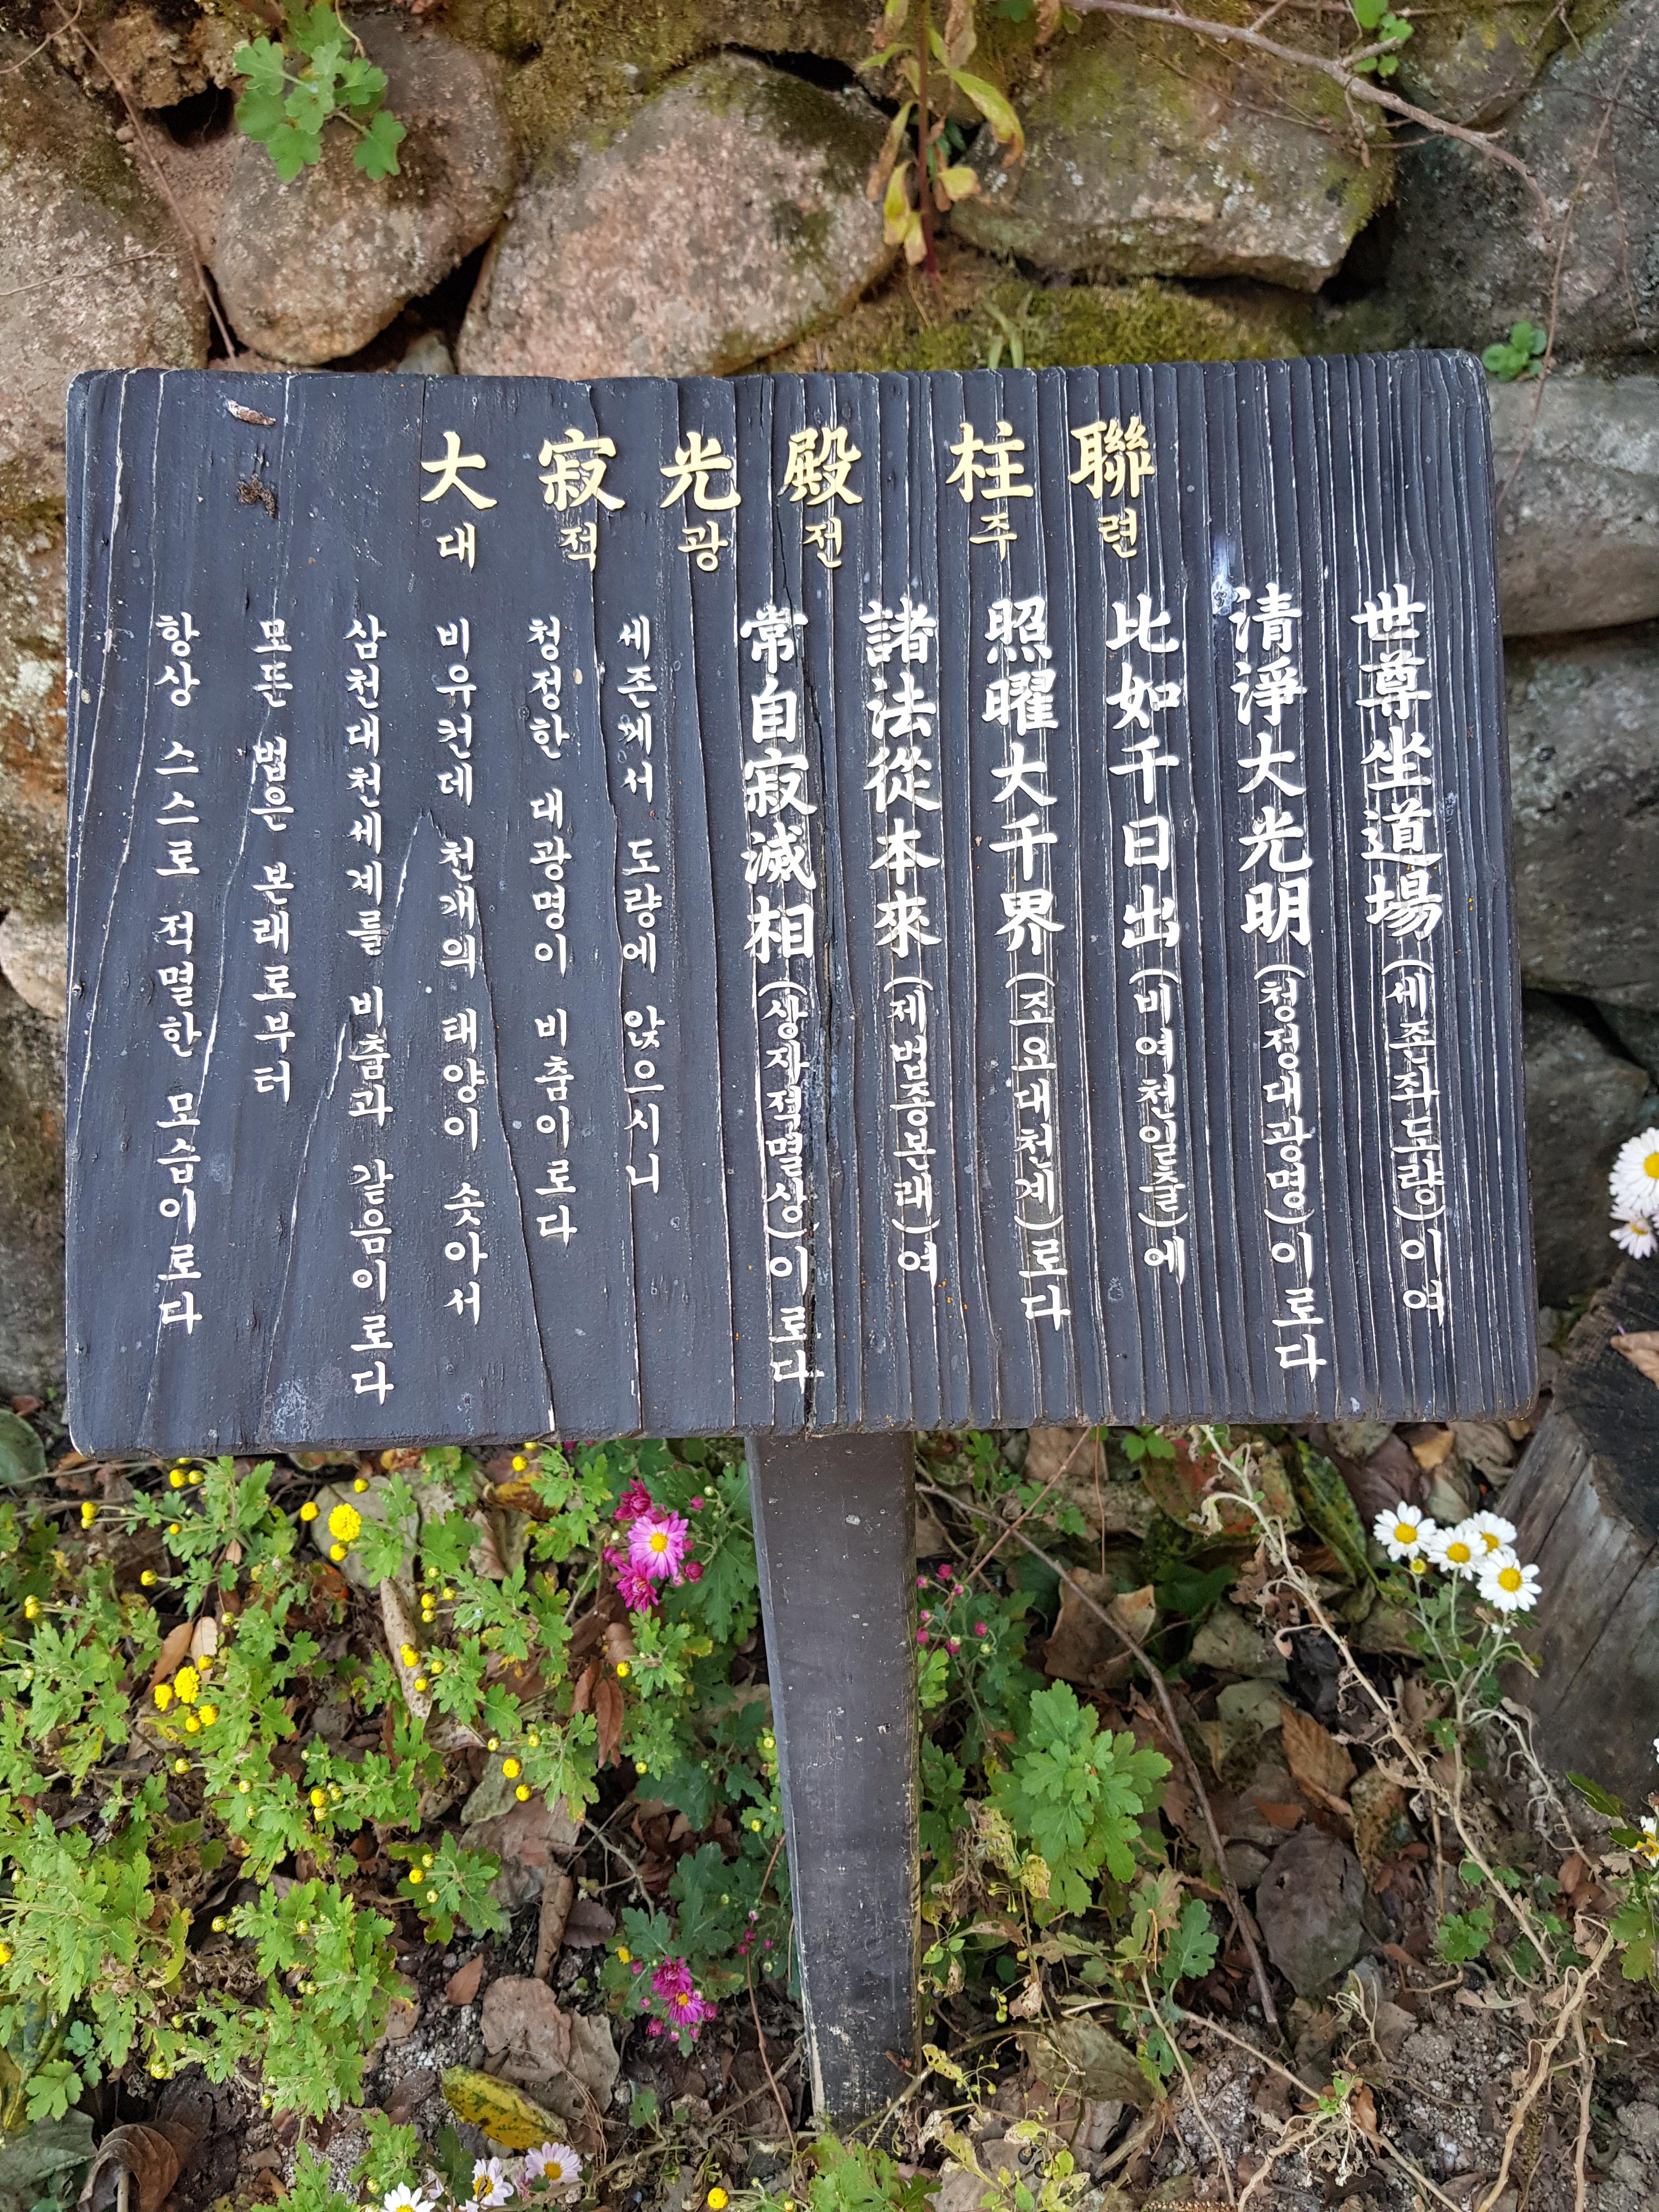 大寂光殿 柱聯
대적광전 주련
世尊坐道場(세존좌도량)이여
清淨大光明(청정대광명)이로다
比如千日出(비여천일출)에
照曜大千界(조요대천계)로다
諸法從本來(제법종본래)여
常自寂滅相(상자적멸상)이로다
세존께서 도량에 앉으시니
청정한 대광명이 비춤이로다
비유컨데 천개의 태양이 솟아서
삼천대천세계를 비춤과 같음이로다
모든 법은 본래로부터
항상 스스로 적멸한 모습이로다